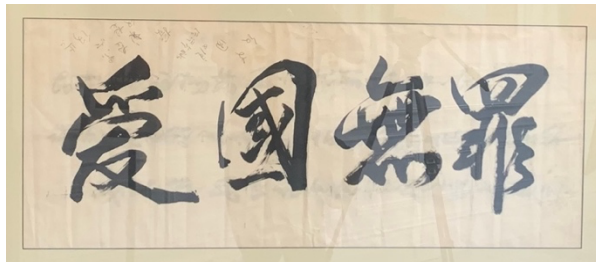 爱國無罪